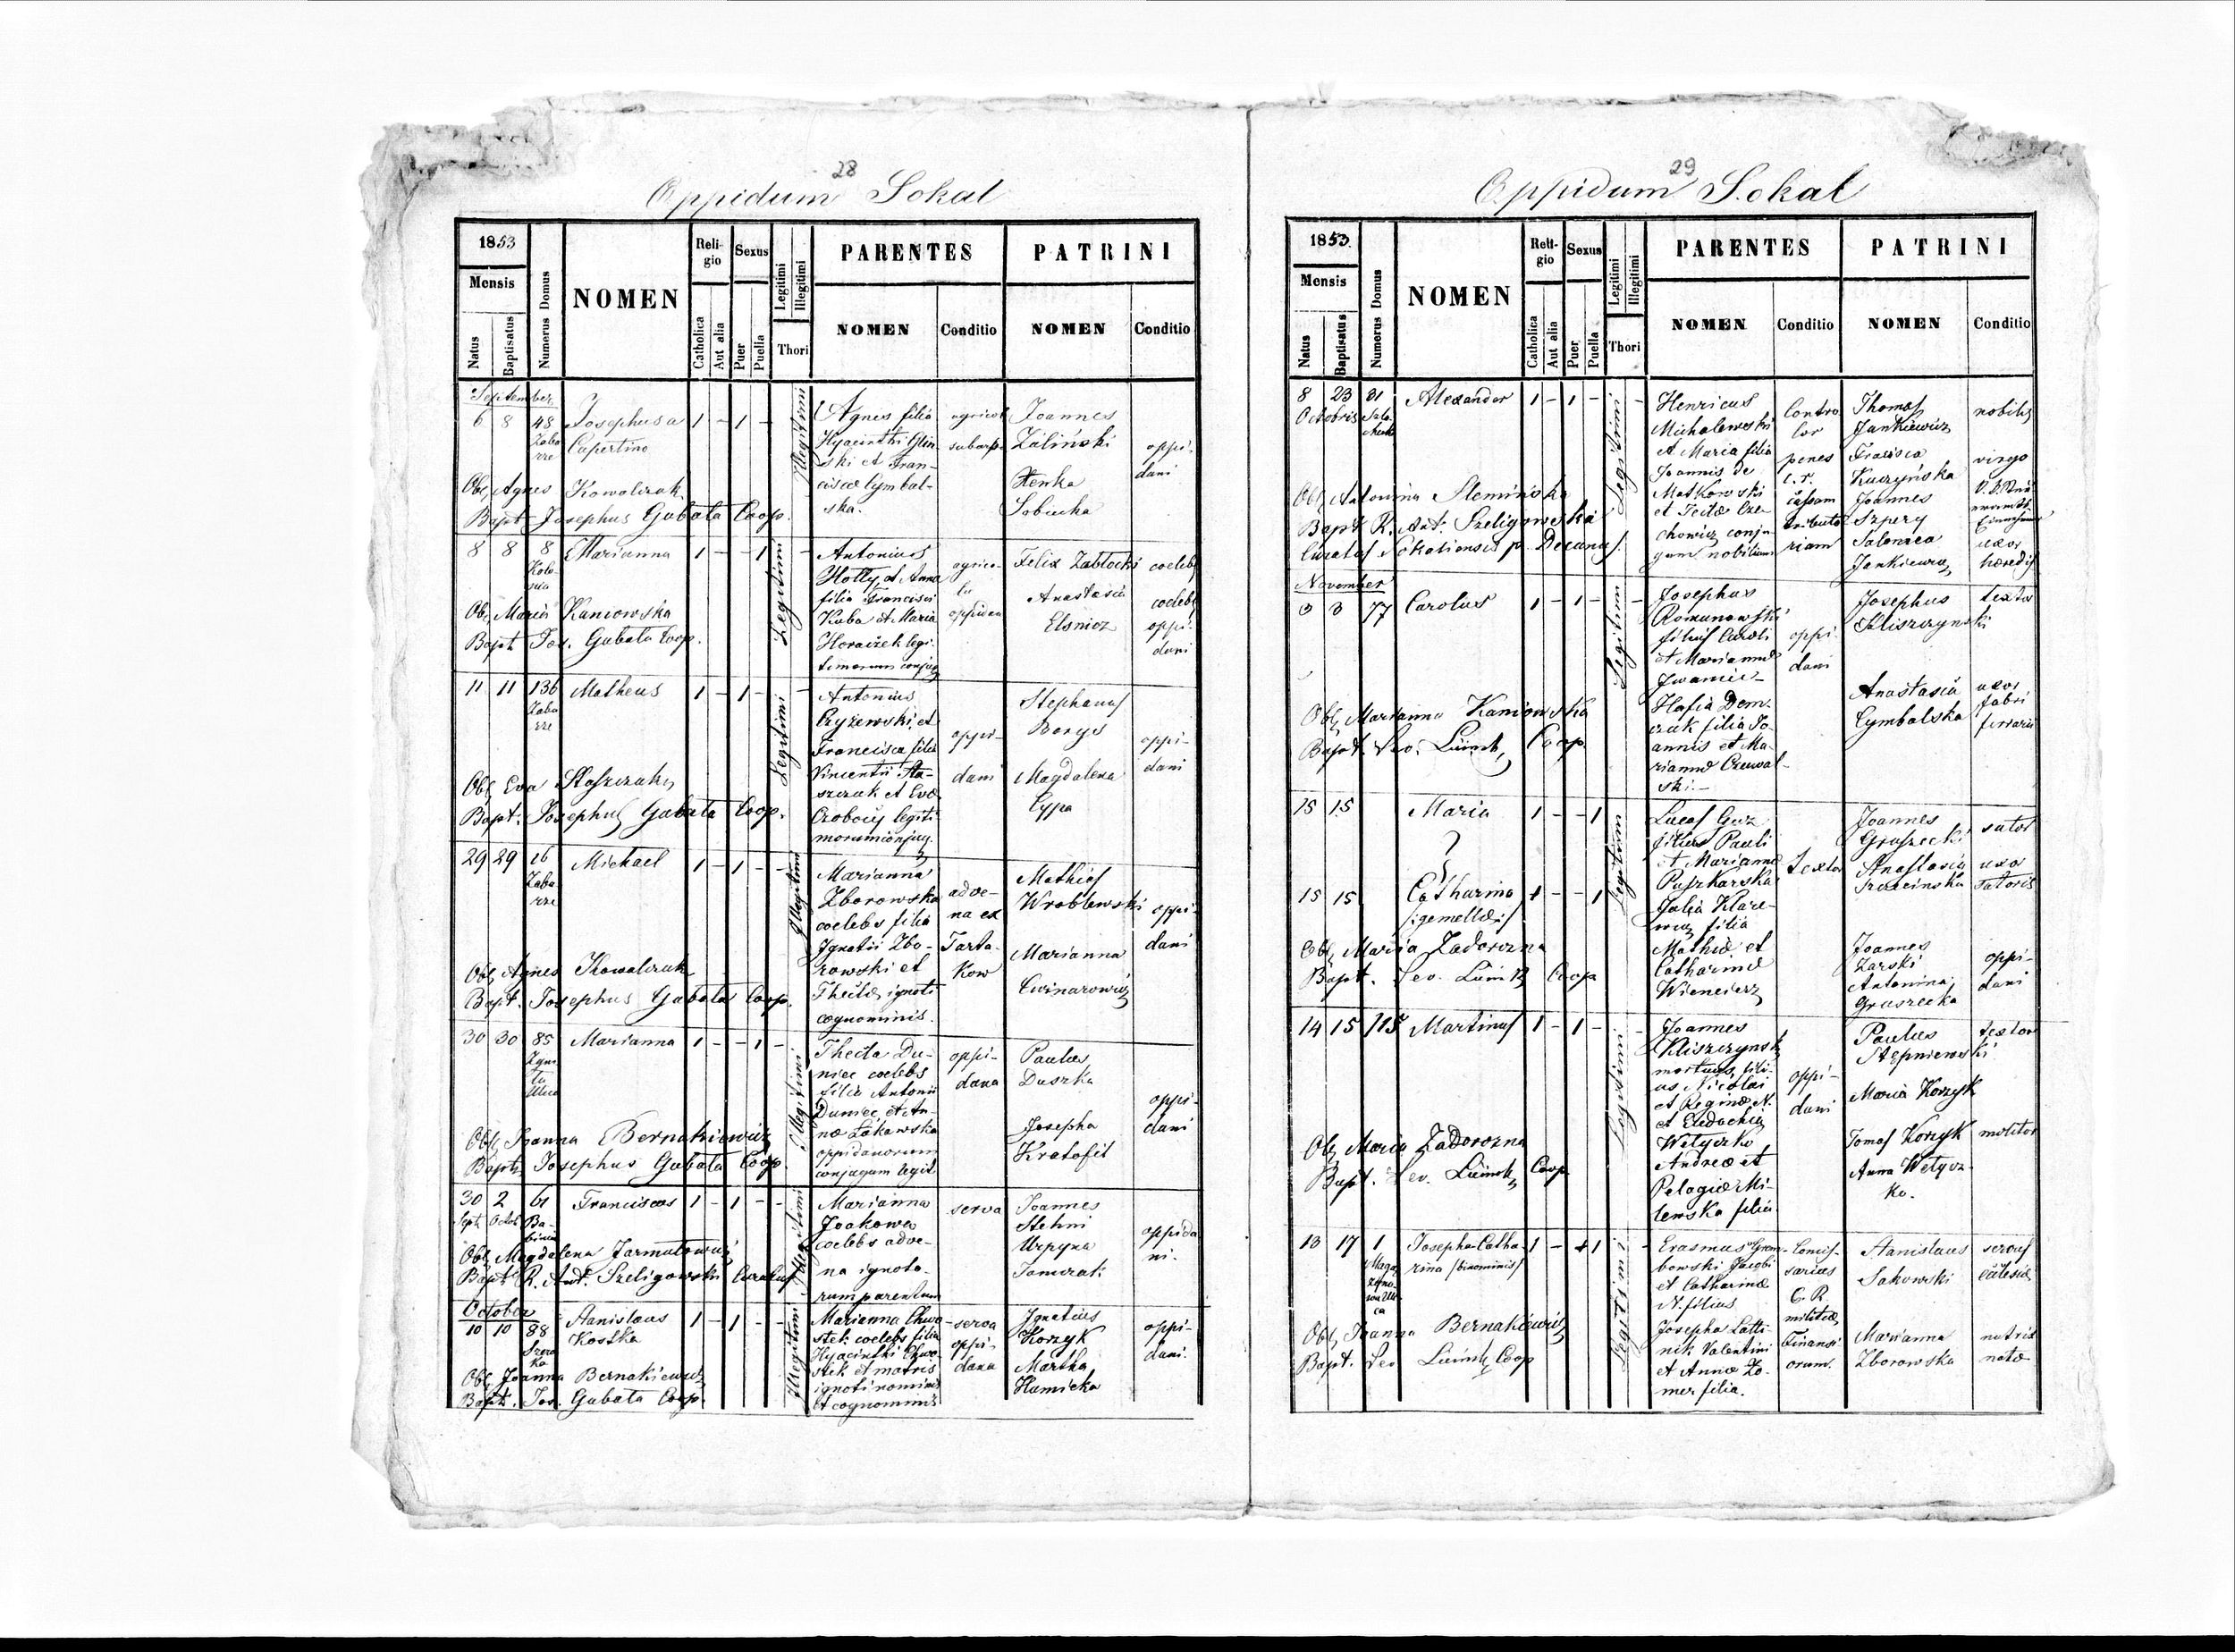 28
Oppidum Sokal
1853
Mensis
Natus
Baptisatus
Numerus Domus
NOMEN
Religio
Catholica
Aut alia
Sexus
Puer
Puella
Legitimi
Illegitimi
Thori
PARENTES
NOMEN
Conditio
PATRINI
NOMEN
Conditio
September
6 8 48 Josephus a 1 - 1 -
Zabo
rze
Cupertino
Illegitimi
Agnes filia
Hyacinthi Glin-
ski et Fran-
ciscæ Cymbal-
ska.
agricol
suburb.
Joannes
Zaliński
Henka
Sobucka
oppi-
dani
Obs. Agnes Kowalczuk
Bapt. Josephus Gabata Coop.
8 8 8 Marianna 1 - - 1
Kolo-
nia
Legitimi
Antonius
Holly, et Anna
filia Francisci
Kuba et Maria
Horaczek legi-
timorum conjug
agrico-
la
oppidan
Felix Zabłocki
Anastasia
Elsnioz
coelebs
coelebs
oppi-
dani
Obs. Maria Kaniowska
Bapt. Jos. Gabata Coop.
11 11 136 Matheus 1 - 1 -
Zabo
rze
Legitimi
Antonius
Czyżewski, et
Francisca filia
Vincentii Sta-
szczuk et Evæ
legiti
morum conjug.
oppi-
dani
Stephanus
Borys
Magdalena
Cypa
oppi-
dani
Obs. Eva Staszczuk
Bapt. Josephus Gabata Coop.
29 29 16 Michael 1 - 1 - -
Zabo
rze
Illegitimi
Marianna
Zborowska
coelebs filia
Ignatii Zbo-
rowski et
Theclæ ignoti
cognominis.
adve-
na ex
Tarta-
kow
Mathias
Wroblewski
Marianna
Cwinarowicz
oppi-
dani
Obs. Agnes Kowalczuk
Bapt. Josephus Gabata Coop.
30 30 85 Marianna 1 - - 1 -
Illegitimi
Thecla Du-
niec coelebs
filia Antonii
Duniec, et An-
næ Żakowska
oppidanorum
conjugum legit.
oppi-
dana
Paulus
Duszka
Josepha
Kratofil
oppi-
dani
Obs. Joanna Bernakiewicz
Bapt. Josephus Gabata Coop.
30 2 61 Franciscus 1 - 1 - -
Sept. Octob. Ba-
binie
Illegitimi
Marianna
Joakowa
coelebs adve-
na ignoto-
rum parentum
serva
Joannes
Stehni
Urpyna
Tomczak
oppida
ni.
Obs. Magdalena Jarmutowicz
Bapt. R. Ant. Szeligowski Curatus
October
10 10 88 Stanislaus 1 - 1 - -
Szero
ka
Kostka
Illegitimi
Marianna Chwo-
stek coelebs filia
Hyacinthi Chwo-
stek et matris
ignoti nominis
et cognominis
serva
oppi-
dana
Ignatius
Korzyk
Martha
Hamicka
oppi-
dani.
Obs. Joanna Bernakiewicz
Bapt. Jos. Gabata Coop.
29
Oppidum Sokal
1853.
Mensis
Natus
Baptisatus
Numerus Domus
NOMEN
Religio
Catholica
Aut alia
Sexus
Puer
Puella
Legitimi
Illegitimi
Thori
PARENTES
NOMEN
Conditio
PATRINI
NOMEN
Conditio
8 23 31 Alexander 1 - 1 - -
Octobris
Legitimi
Henricus
Michalewski
et Maria filia
Joannis de
Matkowski
et Teclæ Cze-
chowicz conju-
gum nobilium
Contro
lor
penes
C. R.
cassam
tributa
riam
Thomas
Jankiewicz
Francisca
Kuczyńska
Joannes
Szpery
Salomea
Jankiewicz
nobilis
virgo
uxor
hæredis
Obs. Antonina Sleminska
Bapt. R. Ant. Szeligowski
Curatus Sokaliensis p. Decanus.
November
3 3 77 Carolus 1 - 1 - -
Legitimi
Josephus
Romanowski
filius Caroli
et Mariannæ
Iwanic-
Hafia Dem-
czuk filia Jo-
annis et Ma-
riannæ Czuwal-
ski.-
oppi-
dani
Josephus
Kliszczynski
Anastasia
Cymbalska
textor
uxor
fabri
ferrarii
Obs. Marianna Kaniowska
Bapt. Leo. Coop.
15 15 Maria 1 - - 1
15 15 Catharina 1 - - 1
/:gemellæ:/
Legitimi
Lucas Guz
filius Pauli
et Mariannæ
Puszkarska
Julia Klare-
wicz filia
Mathiæ et
Catharinæ
Wiencierz
textor
Joannes
Gruszecki
Anastasia
Szczecinska
Joannes
Zarski
Antonina
Gruszecka
sutor
uxor
sutoris
oppi-
dani
Obs. Maria Zadorozna
Bapt. Leo. Coop
14 15 115 Martinus 1 - 1 - -
Legitimi
Joannes
Kliszczynski
mortuus, fili-
us Nicolai
et Reginæ N.
et Eudochia
Wetyczko
Andreæ et
Pelagiæ Mi-
lewska filia
oppi-
dani
Paulus
Stepniewski
Maria Korzyk
Tomas Korzyk
Anna Wetycz-
ko.
textor
molitor
Obs. Maria Zadorozna
Bapt. Leo. Coop
13 17 1 Josepha Catha- 1 - 1 -
rina /binominis/
Maga
zyno-
wa Uli-
ca
Legitimi
Erasmus Gram-
bowski Jacobi
et Catharinæ
N. filius
Josepha Latti-
nik Valentini
et Annæ Zo-
mer filia.
Comis-
sarius
C. R.
militiæ
Finansi
orum.
Stanislaus
Sakowski
Marianna
Zborowska
servus
ecclesiæ
nutrix
natæ
Obs. Joanna Bernakiewicz
Bapt. Leo Coop